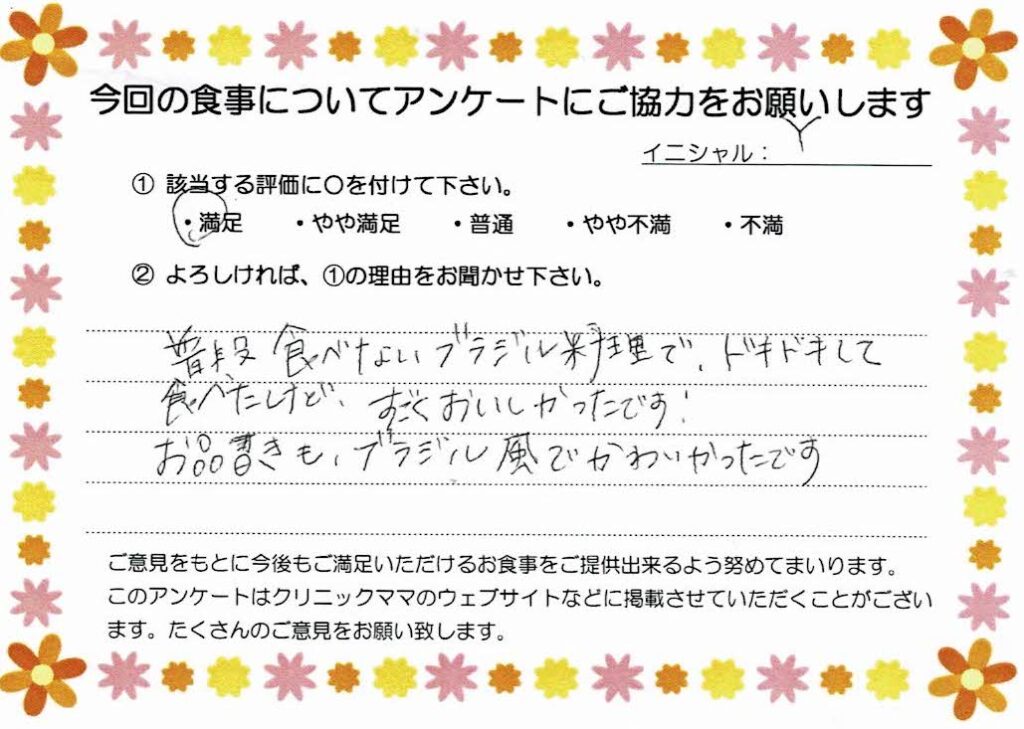 今回の食事についてアンケートにご協力をお願いします
イニシャル： Y
① 該当する評価に〇を付けて下さい。
・満足 ・やや満足 ・普通 ・やや不満 ・不満
② よろしければ、①の理由をお聞かせ下さい。
普段食べないブラジル料理で、ドキドキして
食べたけど、すごくおいしかったです！
お品書きも、ブラジル風でかわいかったです
ご意見をもとに今後もご満足いただけるお食事をご提供出来るよう努めてまいります。
このアンケートはクリニックママのウェブサイトなどに掲載させていただくことがござい
ます。たくさんのご意見をお願い致します。